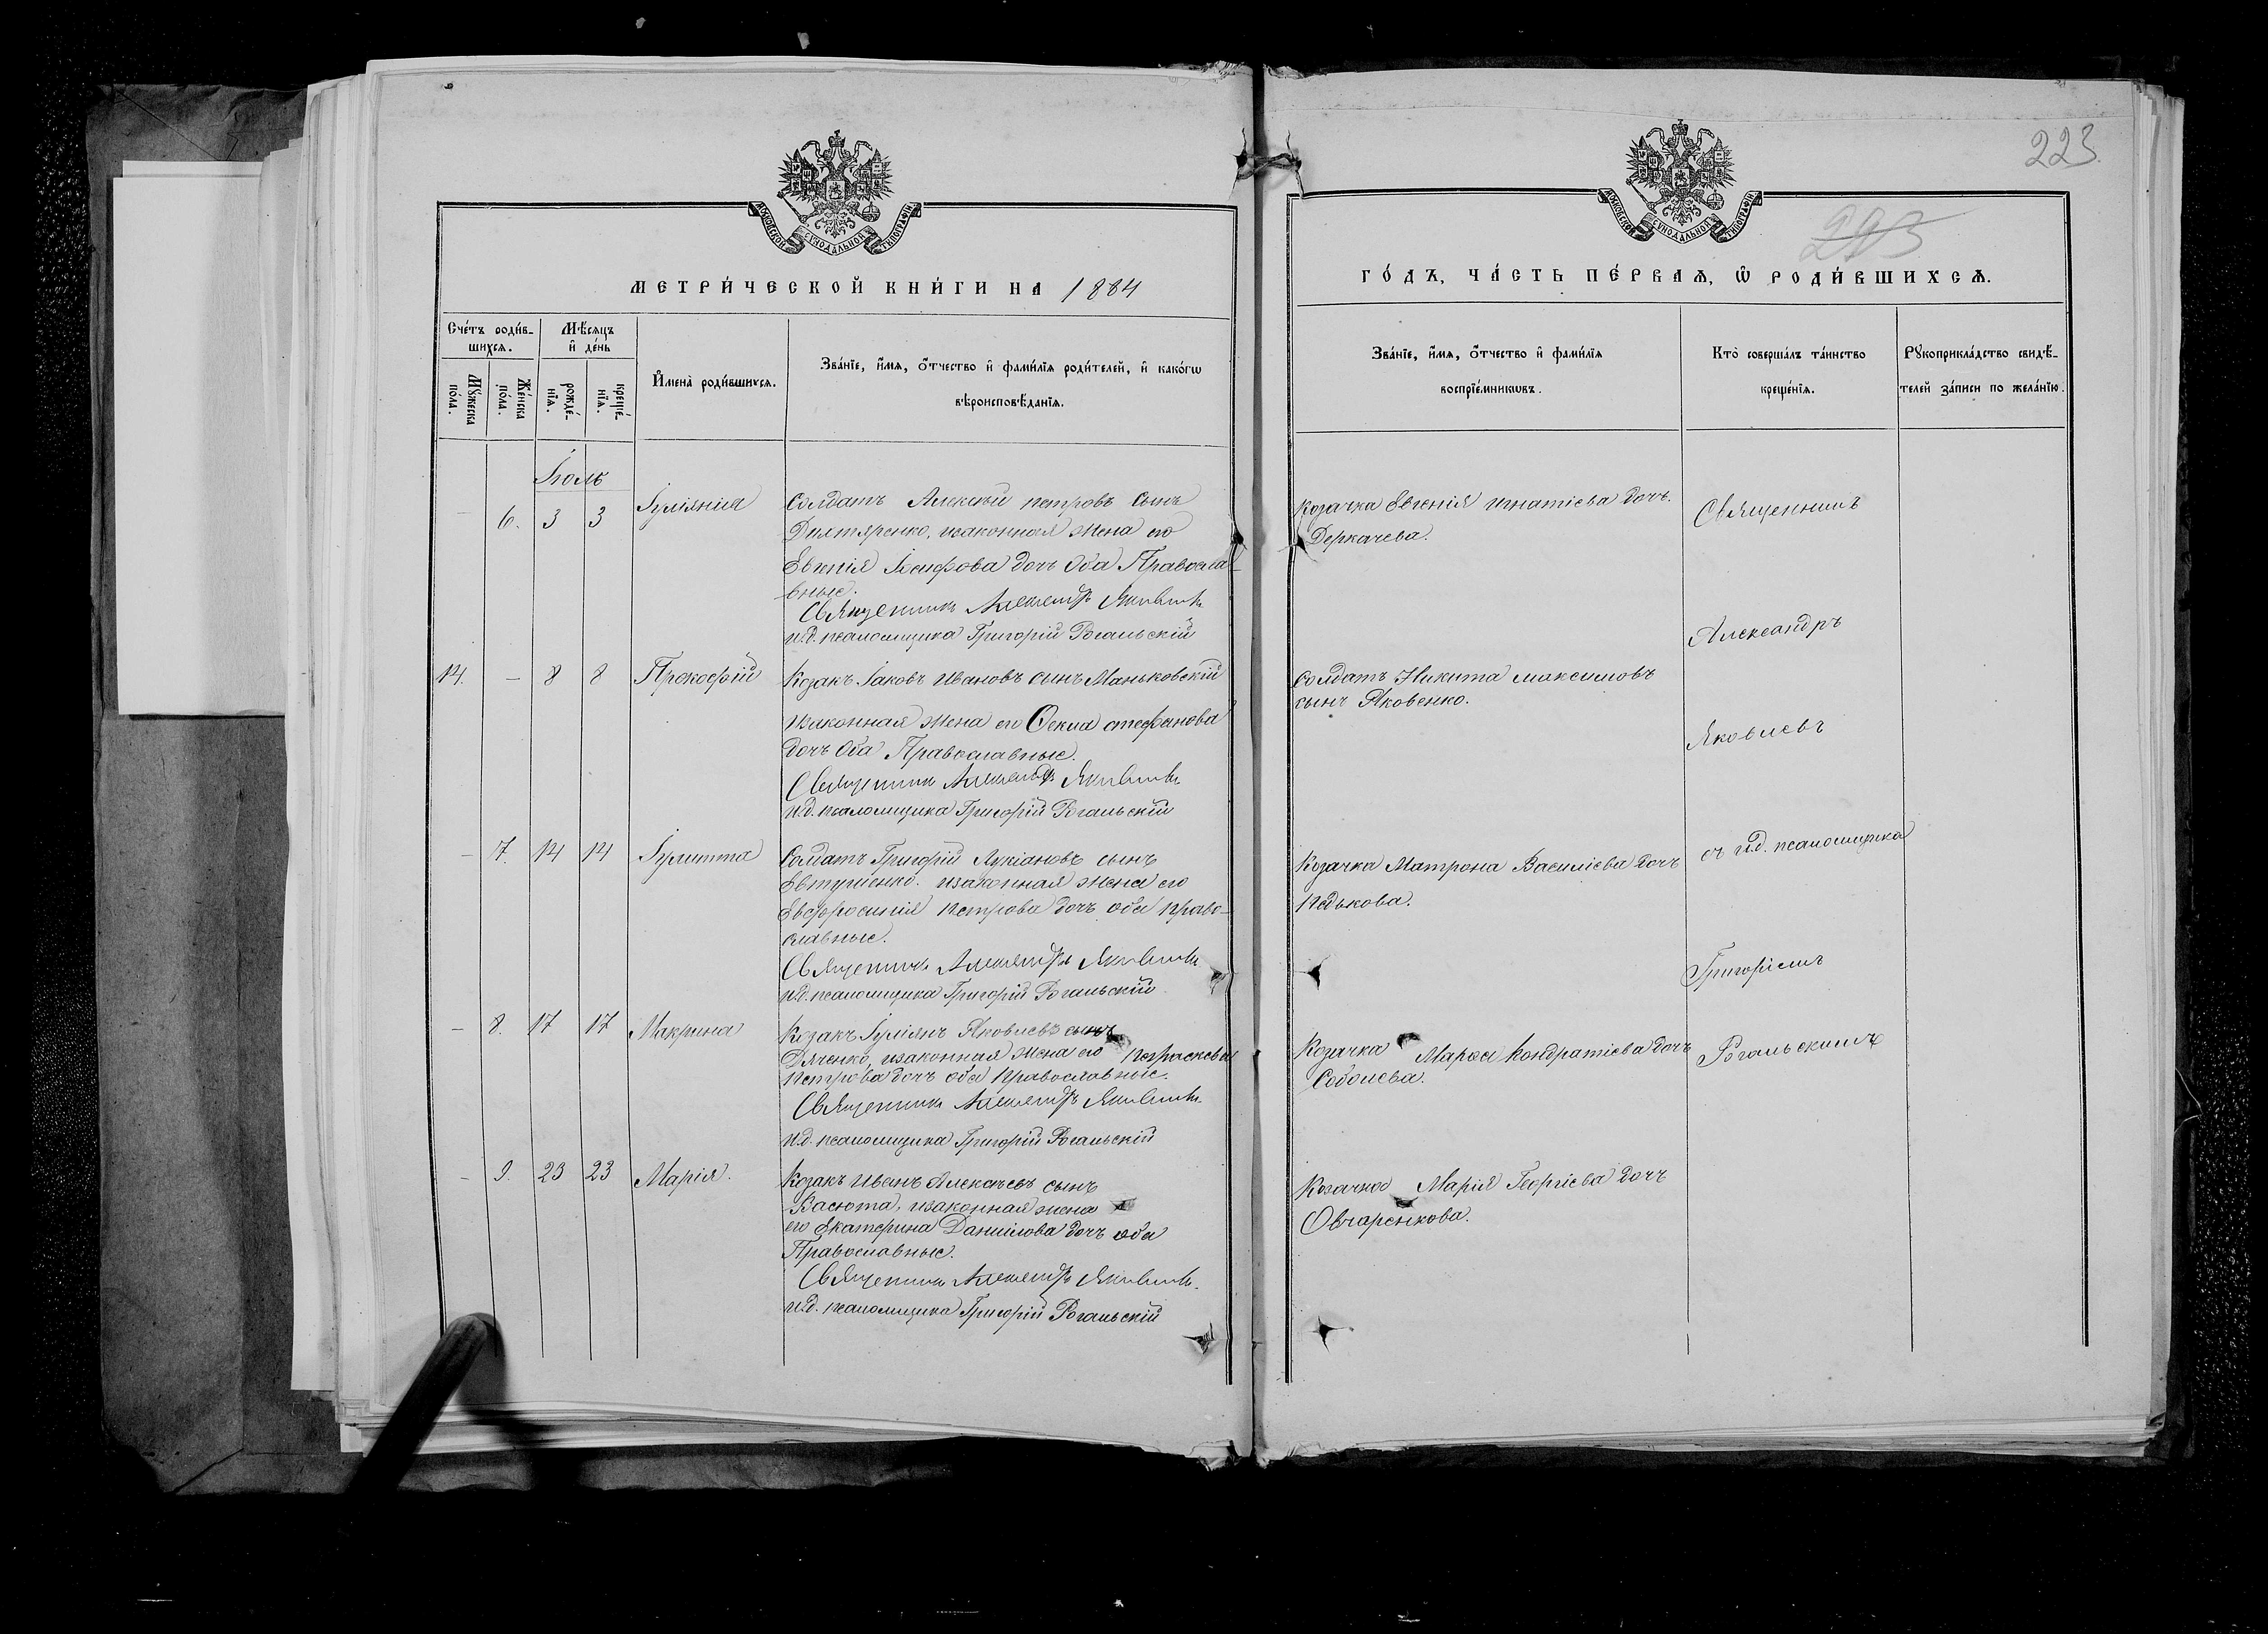 223.
223
МОСКОВСКОЙ СУНОДАЛЬНОЙ ТИПОГРАФІИ
МОСКОВСКОЙ СУНОДАЛЬНОЙ ТИПОГРАФІИ
МЕТРИ́ЧЕСКОЙ КНИ́ГИ НА 1884
ГО́ДЪ, ЧА́СТЬ ПЕ́РВАЯ, Ѡ҆ РОДИ́ВШИХСЯ.
Сче́тъ роди́в-
шихся.
Мѣ́сяцъ
и҆ де́нь
Мꙋ́жеска
по́ла.
Же́нска
по́ла.
рожде́-
нїя.
креще́-
нїя.
И҆мена̀ роди́вшихся.
Зва́нїе, и҆́мя, ѻ҆́тчество и҆ фами́лїя роди́телей, и҆ како́гѡ
вѣроисповѣ́данїя.
Зва́нїе, и҆́мя, ѻ҆́тчество и҆ фами́лїя
воспрїе́мникѡвъ.
Кто̀ соверша́лъ та́инство
креще́нїя.
Рꙋкоприкла́дство свидѣ́-
телей за́писи по жела́нїю.
Іюль
— 6. 3 3 Іуліянія
Солдатъ Алексѣй петровъ сынъ
Дихтяренко, изаконная жена его
Евгенія Іосифова дочь Оба Правосла-
вные.
Священникъ Александръ Яковлевъ
и.д. псаломщика Григорій Рогальскій
Козачка Евгенія игнатіева дочь.
Деркачева.
Священникъ
Александръ
14. — 8 8 Прокофій
Козакъ Іаковъ ивановъ сынъ Маньковскій
изаконная жена его Ѳекла стефанова
дочъ Оба Православные.
Священникъ Александръ Яковлевъ
и.д. псаломщика Григорій Рогальскій
Солдатъ Никита максимовъ
сынъ Яковенко.
Яковлевъ
— 7. 14 14 Іулитта
Солдатъ Григорій Лукіановъ сынъ
Евтушенко. изаконная жена его
Евфросинія петрова дочъ оба право-
славные.
Священникъ Александръ Яковлевъ
и.д. псаломщика Григорій Рогальскій
Козачка Матрона Василіева дочъ
Педькова.
съ и.д. псаломщика
Григоріемъ
— 8. 17 17 Макрина
Козакъ Іуліянъ Яковлевъ сынъ
Дяченко, изаконная жена его Параскева
петрова дочъ оба православные.
Священникъ Александръ Яковлевъ
и.д. псаломщика Григорій Рогальскій
Козачка Марѳа Кондратіева дочъ
Соболева.
Рогальскимъ
— 9. 23 23 Марія.
Козакъ Иванъ Алексѣевъ сынъ
Васюта, изаконная жена
его Екатерина Даниилова дочъ оба
Православные.
Священникъ Александръ Яковлевъ.
и.д. псаломщика Григорій Рогальскій
Козачка Марія Георгіева дочъ
Овчаренкова.